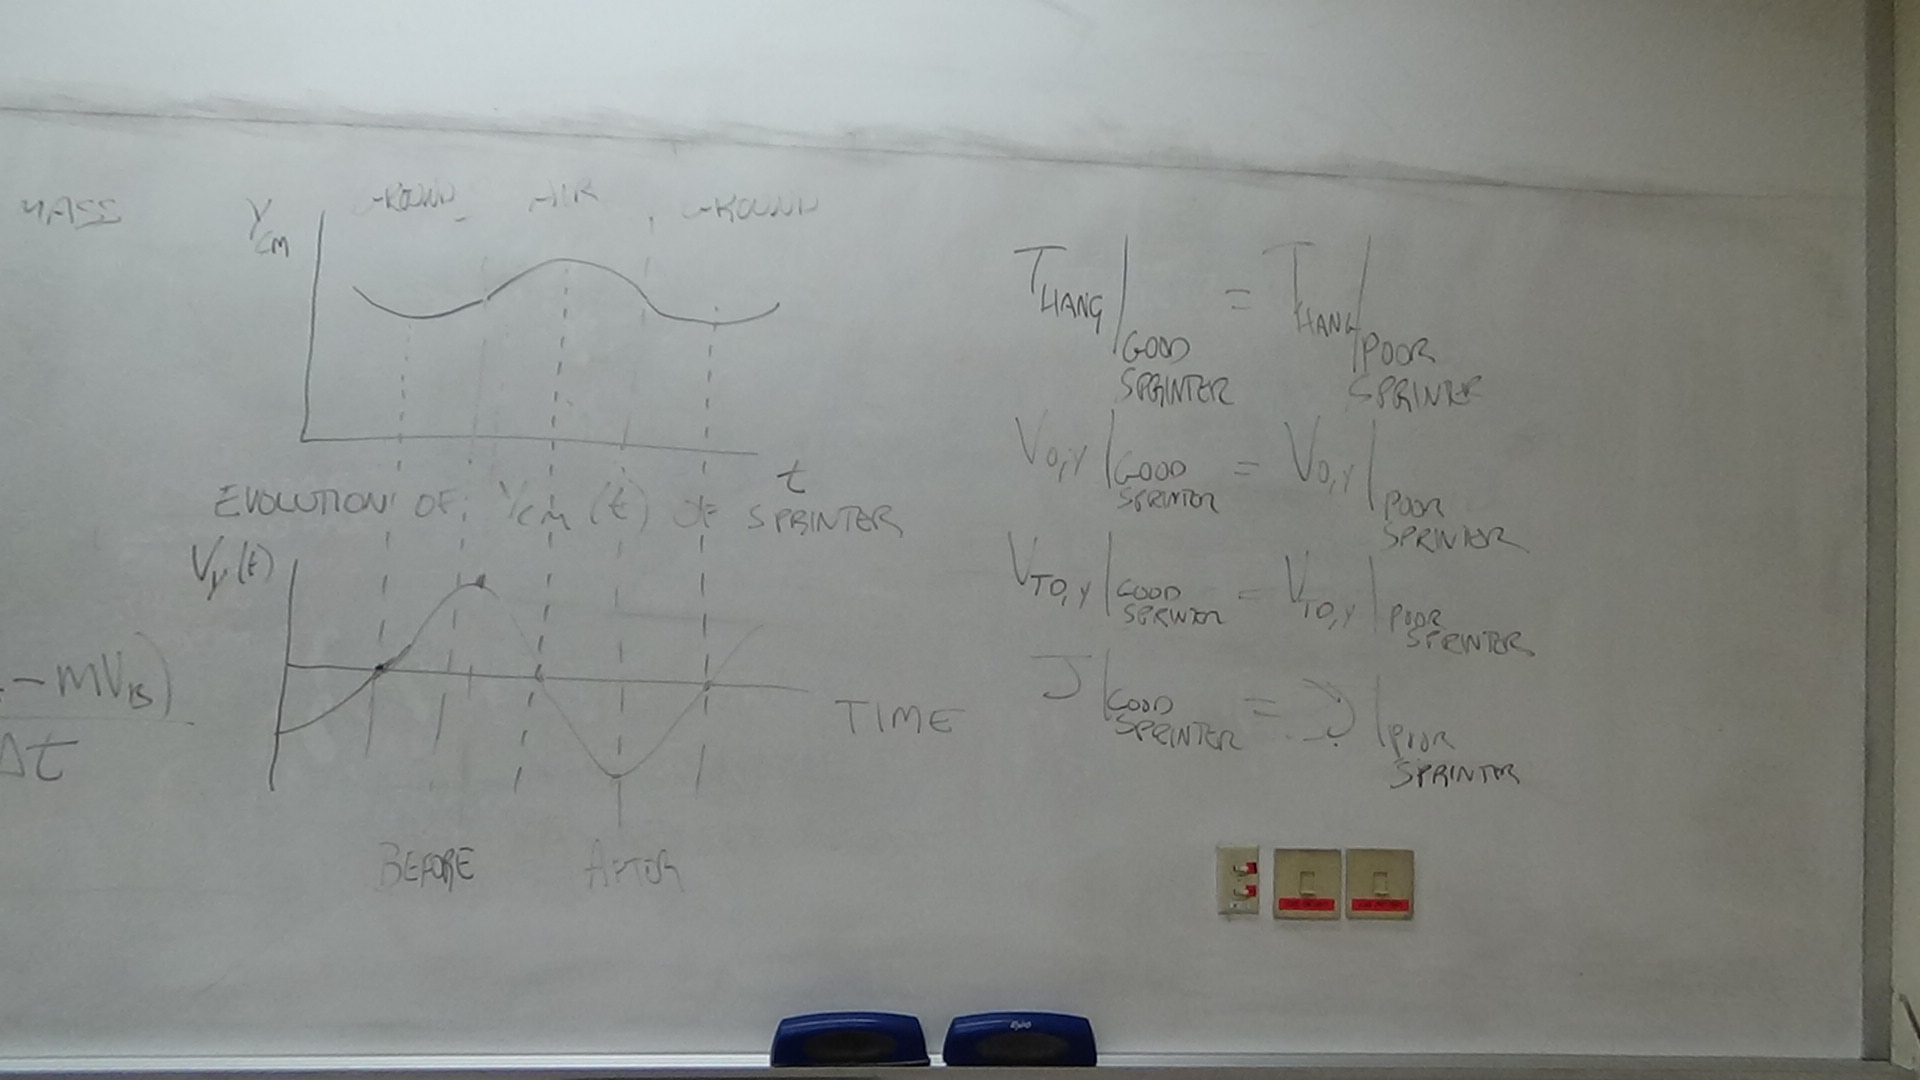 MASS
Y CM
GROUND AIR GROUND
t
EVOLUTION OF YCM (t) OF SPRINTER
Vy(t)
TIME
BEFORE AFTER
- mVB)
Δt
THANG|GOOD SPRINTER = THANG|POOR SPRINTER
V0,Y|GOOD SPRINTER = V0,Y|POOR SPRINTER
VTO,Y|GOOD SPRINTER = VTO,Y|POOR SPRINTER
J|GOOD SPRINTER = J|POOR SPRINTER
Expo